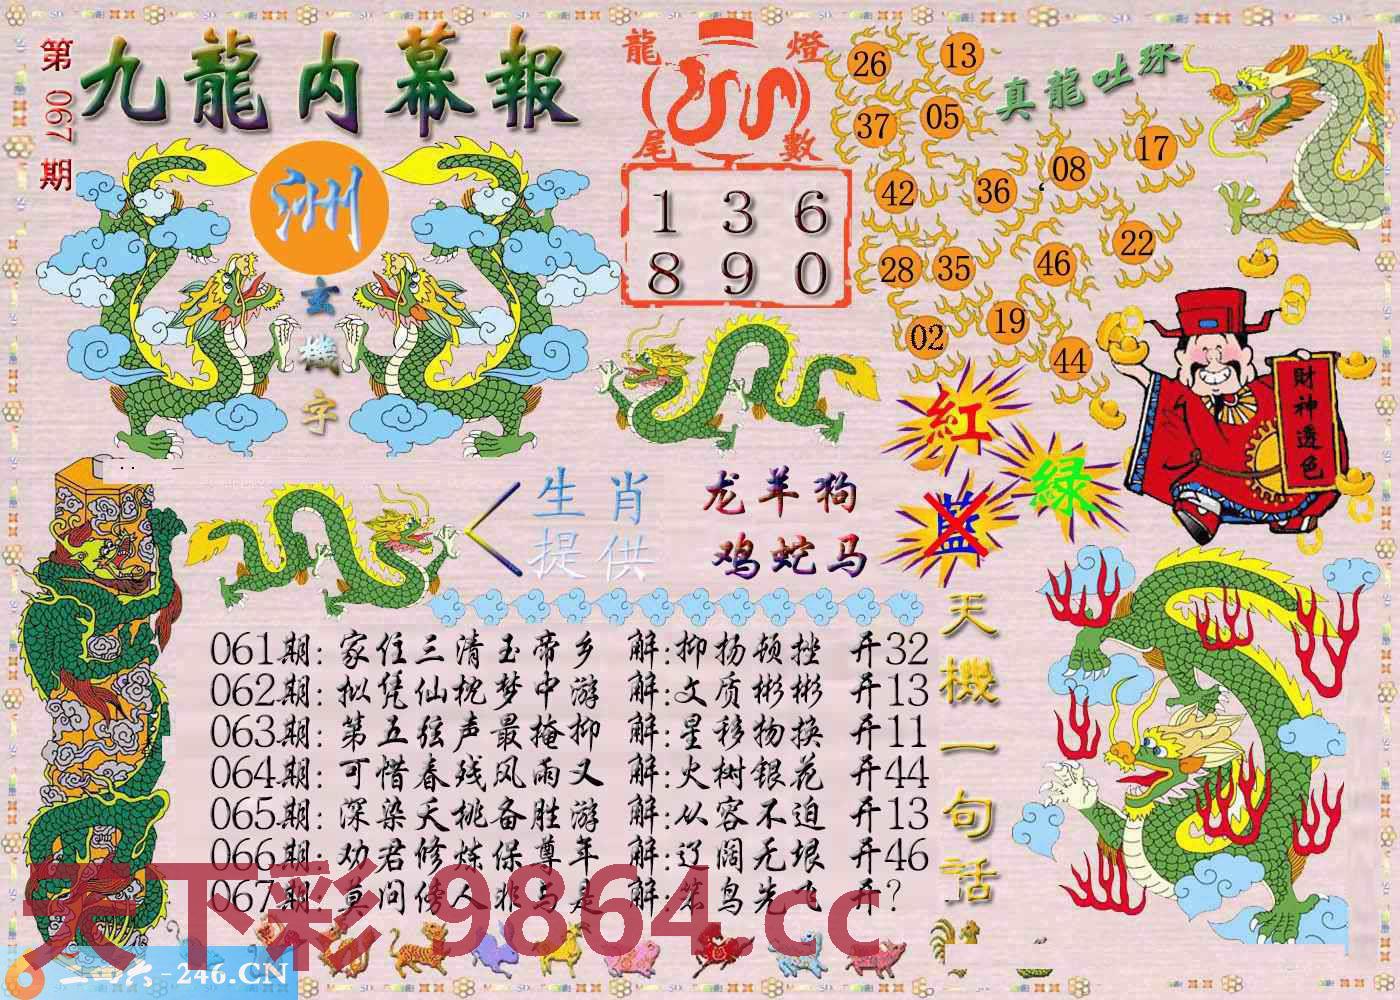 第067期
九龍内幕報
洲
玄機字
龍燈
尾數
1 3 6
8 9 0
真龍吐珠
26 13
37 05
42 36 08 17
28 35 46 22
02 19 44
財神透色
紅
绿
蓝
生肖提供
龙羊狗
鸡蛇马
天機一句話
061期: 家住三清玉帝乡 解:抑扬顿挫 开32
062期: 拟凭仙枕梦中游 解:文质彬彬 开13
063期: 第五弦声最掩抑 解:星移物换 开11
064期: 可惜春残风雨又 解:火树银花 开44
065期: 深染夭桃备胜游 解:从容不迫 开13
066期: 劝君修炼保尊年 解:辽阔无垠 开46
067期: 莫问傍人非与是 解:笨鸟先飞 开?
天下彩 9864.cc
二四六-246.CN